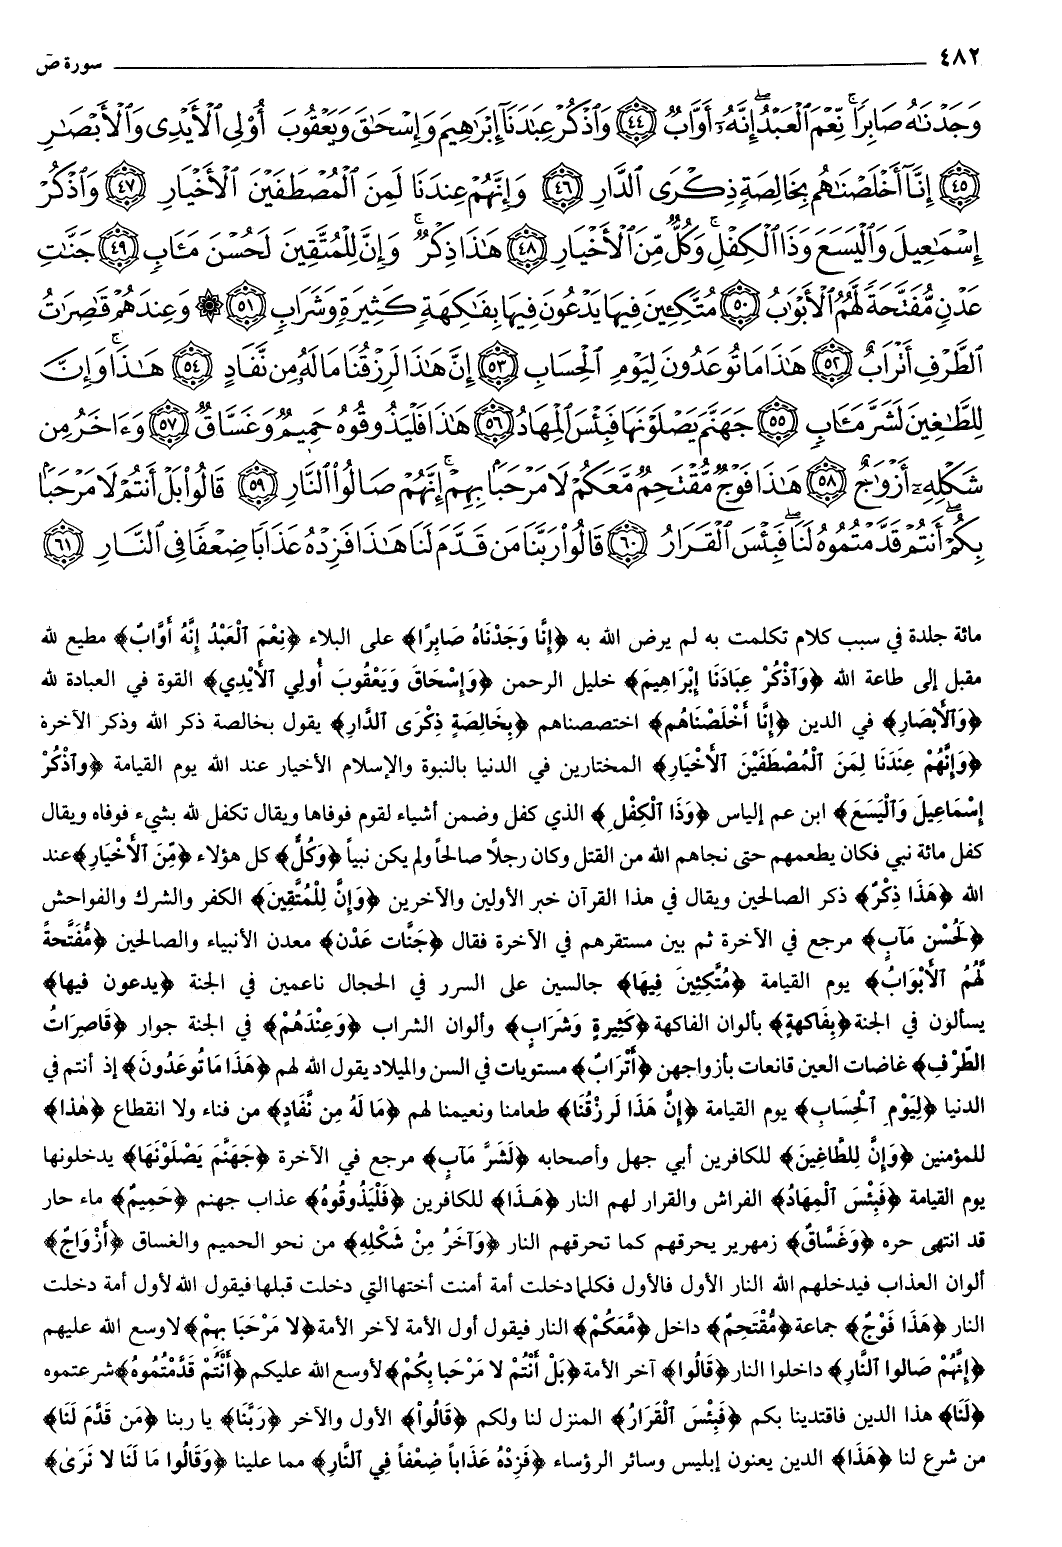 ٤٨٢ سورة صۤ
وَجَدْنَٰهُ صَابِرًاۚ نِّعْمَ ٱلْعَبْدُۖ إِنَّهُۥٓ أَوَّابٌ ﴿٤٤﴾ وَٱذْكُرْ عِبَٰدَنَآ إِبْرَٰهِيمَ وَإِسْحَٰقَ وَيَعْقُوبَ أُو۟لِى ٱلْأَيْدِى وَٱلْأَبْصَٰرِ
﴿٤٥﴾ إِنَّآ أَخْلَصْنَٰهُم بِخَالِصَةٍ ذِكْرَى ٱلدَّارِ ﴿٤٦﴾ وَإِنَّهُمْ عِندَنَا لَمِنَ ٱلْمُصْطَفَيْنَ ٱلْأَخْيَارِ ﴿٤٧﴾ وَٱذْكُرْ
إِسْمَٰعِيلَ وَٱلْيَسَعَ وَذَا ٱلْكِفْلِۖ وَكُلٌّ مِّنَ ٱلْأَخْيَارِ ﴿٤٨﴾ هَٰذَا ذِكْرٌۚ وَإِنَّ لِلْمُتَّقِينَ لَحُسْنَ مَـَٔابٍ ﴿٤٩﴾ جَنَّٰتِ
عَدْنٍ مُّفَتَّحَةً لَّهُمُ ٱلْأَبْوَٰبُ ﴿٥٠﴾ مُتَّكِـِٔينَ فِيهَا يَدْعُونَ فِيهَا بِفَٰكِهَةٍ كَثِيرَةٍ وَشَرَابٍ ﴿٥١﴾ ۞ وَعِندَهُمْ قَٰصِرَٰتُ
ٱلطَّرْفِ أَتْرَابٌ ﴿٥٢﴾ هَٰذَا مَا تُوعَدُونَ لِيَوْمِ ٱلْحِسَابِ ﴿٥٣﴾ إِنَّ هَٰذَا لَرِزْقُنَا مَا لَهُۥ مِن نَّفَادٍ ﴿٥٤﴾ هَٰذَاۚ وَإِنَّ
لِلطَّٰغِينَ لَشَرَّ مَـَٔابٍ ﴿٥٥﴾ جَهَنَّمَ يَصْلَوْنَهَا فَبِئْسَ ٱلْمِهَادُ ﴿٥٦﴾ هَٰذَا فَلْيَذُوقُوهُ حَمِيمٌ وَغَسَّاقٌ ﴿٥٧﴾ وَءَاخَرُ مِن
شَكْلِهِۦٓ أَزْوَٰجٌ ﴿٥٨﴾ هَٰذَا فَوْجٌ مُّقْتَحِمٌ مَّعَكُمْ لَا مَرْحَبًۢا بِهِمْۚ إِنَّهُمْ صَالُوا۟ ٱلنَّارِ ﴿٥٩﴾ قَالُوا۟ بَلْ أَنتُمْ لَا مَرْحَبًۢا
بِكُمْۖ أَنتُمْ قَدَّمْتُمُوهُ لَنَاۖ فَبِئْسَ ٱلْقَرَارُ ﴿٦٠﴾ قَالُوا۟ رَبَّنَا مَن قَدَّمَ لَنَا هَٰذَا فَزِدْهُ عَذَابًا ضِعْفًا فِى ٱلنَّارِ ﴿٦١﴾
مائة جلدة في سبب كلام تكلمت به لم يرض الله به ﴿إِنَّا وَجَدْنَاهُ صَابِرًا﴾ على البلاء ﴿نِعْمَ ٱلْعَبْدُ إِنَّهُ أَوَّابٌ﴾ مطيع لله
مقبل إلى طاعة الله ﴿وَٱذْكُرْ عِبَادَنَا إِبْرَاهِيمَ﴾ خليل الرحمن ﴿وَإِسْحَاقَ وَيَعْقُوبَ أُولِي ٱلأَيْدِي﴾ القوة في العبادة لله
﴿وَٱلأَبْصَارِ﴾ في الدين ﴿إِنَّا أَخْلَصْنَاهُم﴾ اختصصناهم ﴿بِخَالِصَةٍ ذِكْرَى ٱلدَّارِ﴾ يقول بخالصة ذكر الله وذكر الآخرة
﴿وَإِنَّهُمْ عِنْدَنَا لَمِنَ ٱلْمُصْطَفَيْنَ ٱلأَخْيَارِ﴾ المختارين في الدنيا بالنبوة والإسلام الأخيار عند الله يوم القيامة ﴿وٱذْكُرْ
إِسْمَاعِيلَ وَٱلْيَسَعَ﴾ ابن عم إلياس ﴿وَذَا ٱلْكِفْلِ﴾ الذي كفل وضمن أشياء لقوم فوفاها ويقال تكفل لله بشيء فوفاه ويقال
كفل مائة نبي فكان يطعمهم حتى نجاهم الله من القتل وكان رجلاً صالحاً ولم يكن نبياً ﴿وَكُلٌّ﴾ كل هؤلاء ﴿مِّنَ ٱلأَخْيَارِ﴾ عند
الله ﴿هَذَا ذِكْرٌ﴾ ذكر الصالحين ويقال في هذا القرآن خبر الأولين والآخرين ﴿وَإِنَّ لِلْمُتَّقِينَ﴾ الكفر والشرك والفواحش
﴿لَحُسْنَ مَآبٍ﴾ مرجع في الآخرة ثم بين مستقرهم في الآخرة فقال ﴿جَنَّات عَدْن﴾ معدن الأنبياء والصالحين ﴿مُّفَتَّحةً
لَّهُمُ ٱلأَبْوَابُ﴾ يوم القيامة ﴿مُتَّكِئِينَ فِيهَا﴾ جالسين على السرر في الحجال ناعمين في الجنة ﴿يدعون فيها﴾
يسألون في الجنة ﴿بِفَاكِهةٍ﴾ بألوان الفاكهة ﴿كَثِيرةٍ وَشَرَابٍ﴾ وألوان الشراب ﴿وَعِنْدَهُمْ﴾ في الجنة جوار ﴿قَاصِرَاتُ
الطَّرْفِ﴾ غاضات العين قانعات بأزواجهن ﴿أَتْرَابٌ﴾ مستويات في السن والميلاد يقول الله لهم ﴿هَذَا مَا تُوعَدُونَ﴾ إذ أنتم في
الدنيا ﴿لِيَوْمِ ٱلْحِسَابِ﴾ يوم القيامة ﴿إِنَّ هَذَا لَرِزْقُنَا﴾ طعامنا ونعيمنا لهم ﴿مَا لَهُ مِن نَّفَادٍ﴾ من فناء ولا انقطاع ﴿هٰذا﴾
للمؤمنين ﴿وَإِنَّ لِلطَّاغِينَ﴾ للكافرين أبي جهل وأصحابه ﴿لَشَرَّ مَآبٍ﴾ مرجع في الآخرة ﴿جَهَنَّمَ يَصْلَوْنَهَا﴾ يدخلونها
يوم القيامة ﴿فَبِئْسَ ٱلْمِهَادُ﴾ الفراش والقرار لهم النار ﴿هَـذَا﴾ للكافرين ﴿فَلْيَذُوقُوهُ﴾ عذاب جهنم ﴿حَمِيمٌ﴾ ماء حار
قد انتهى حره ﴿وَغَسَّاقٌ﴾ زمهرير يحرقهم كما تحرقهم النار ﴿وَآخَرُ مِنْ شَكْلِهِ﴾ من نحو الحميم والغساق ﴿أَزْوَاجٌ﴾
ألوان العذاب فيدخلهم الله النار الأول فالأول فكلما دخلت أمة أمنت أختها التي دخلت قبلها فيقول الله لأول أمة دخلت
النار ﴿هَذَا فَوْجٌ﴾ جماعة ﴿مُّقْتَحِمٌ﴾ داخل ﴿مَّعَكُمْ﴾ النار فيقول أول الأمة لآخر الأمة ﴿لا مَرْحَبَا بِهِمْ﴾ لا وسع الله عليهم
﴿إِنَّهُمْ صَالوا ٱلنَّارِ﴾ داخلوا النار ﴿قَالُوا﴾ آخر الأمة ﴿بَلْ أَنْتُمْ لا مَرْحَبا بِكُمْ﴾ لا وسع الله عليكم ﴿أَنْتُمْ قَدَّمْتُمُوهُ﴾ شرعتموه
﴿لَنَا﴾ هذا الدين فاقتدينا بكم ﴿فَبِئْسَ ٱلْقَرَارُ﴾ المنزل لنا ولكم ﴿قَالُواْ﴾ الأول والآخر ﴿رَبَّنَا﴾ يا ربنا ﴿مَن قَدَّمَ لَنَا﴾
من شرع لنا ﴿هَذَا﴾ الدين يعنون إبليس وسائر الرؤساء ﴿فَزِدْهُ عَذَاباً ضِعْفاً فِي ٱلنَّارِ﴾ مما علينا ﴿وَقَالُوا مَا لَنَا لا نَرَىٰ﴾